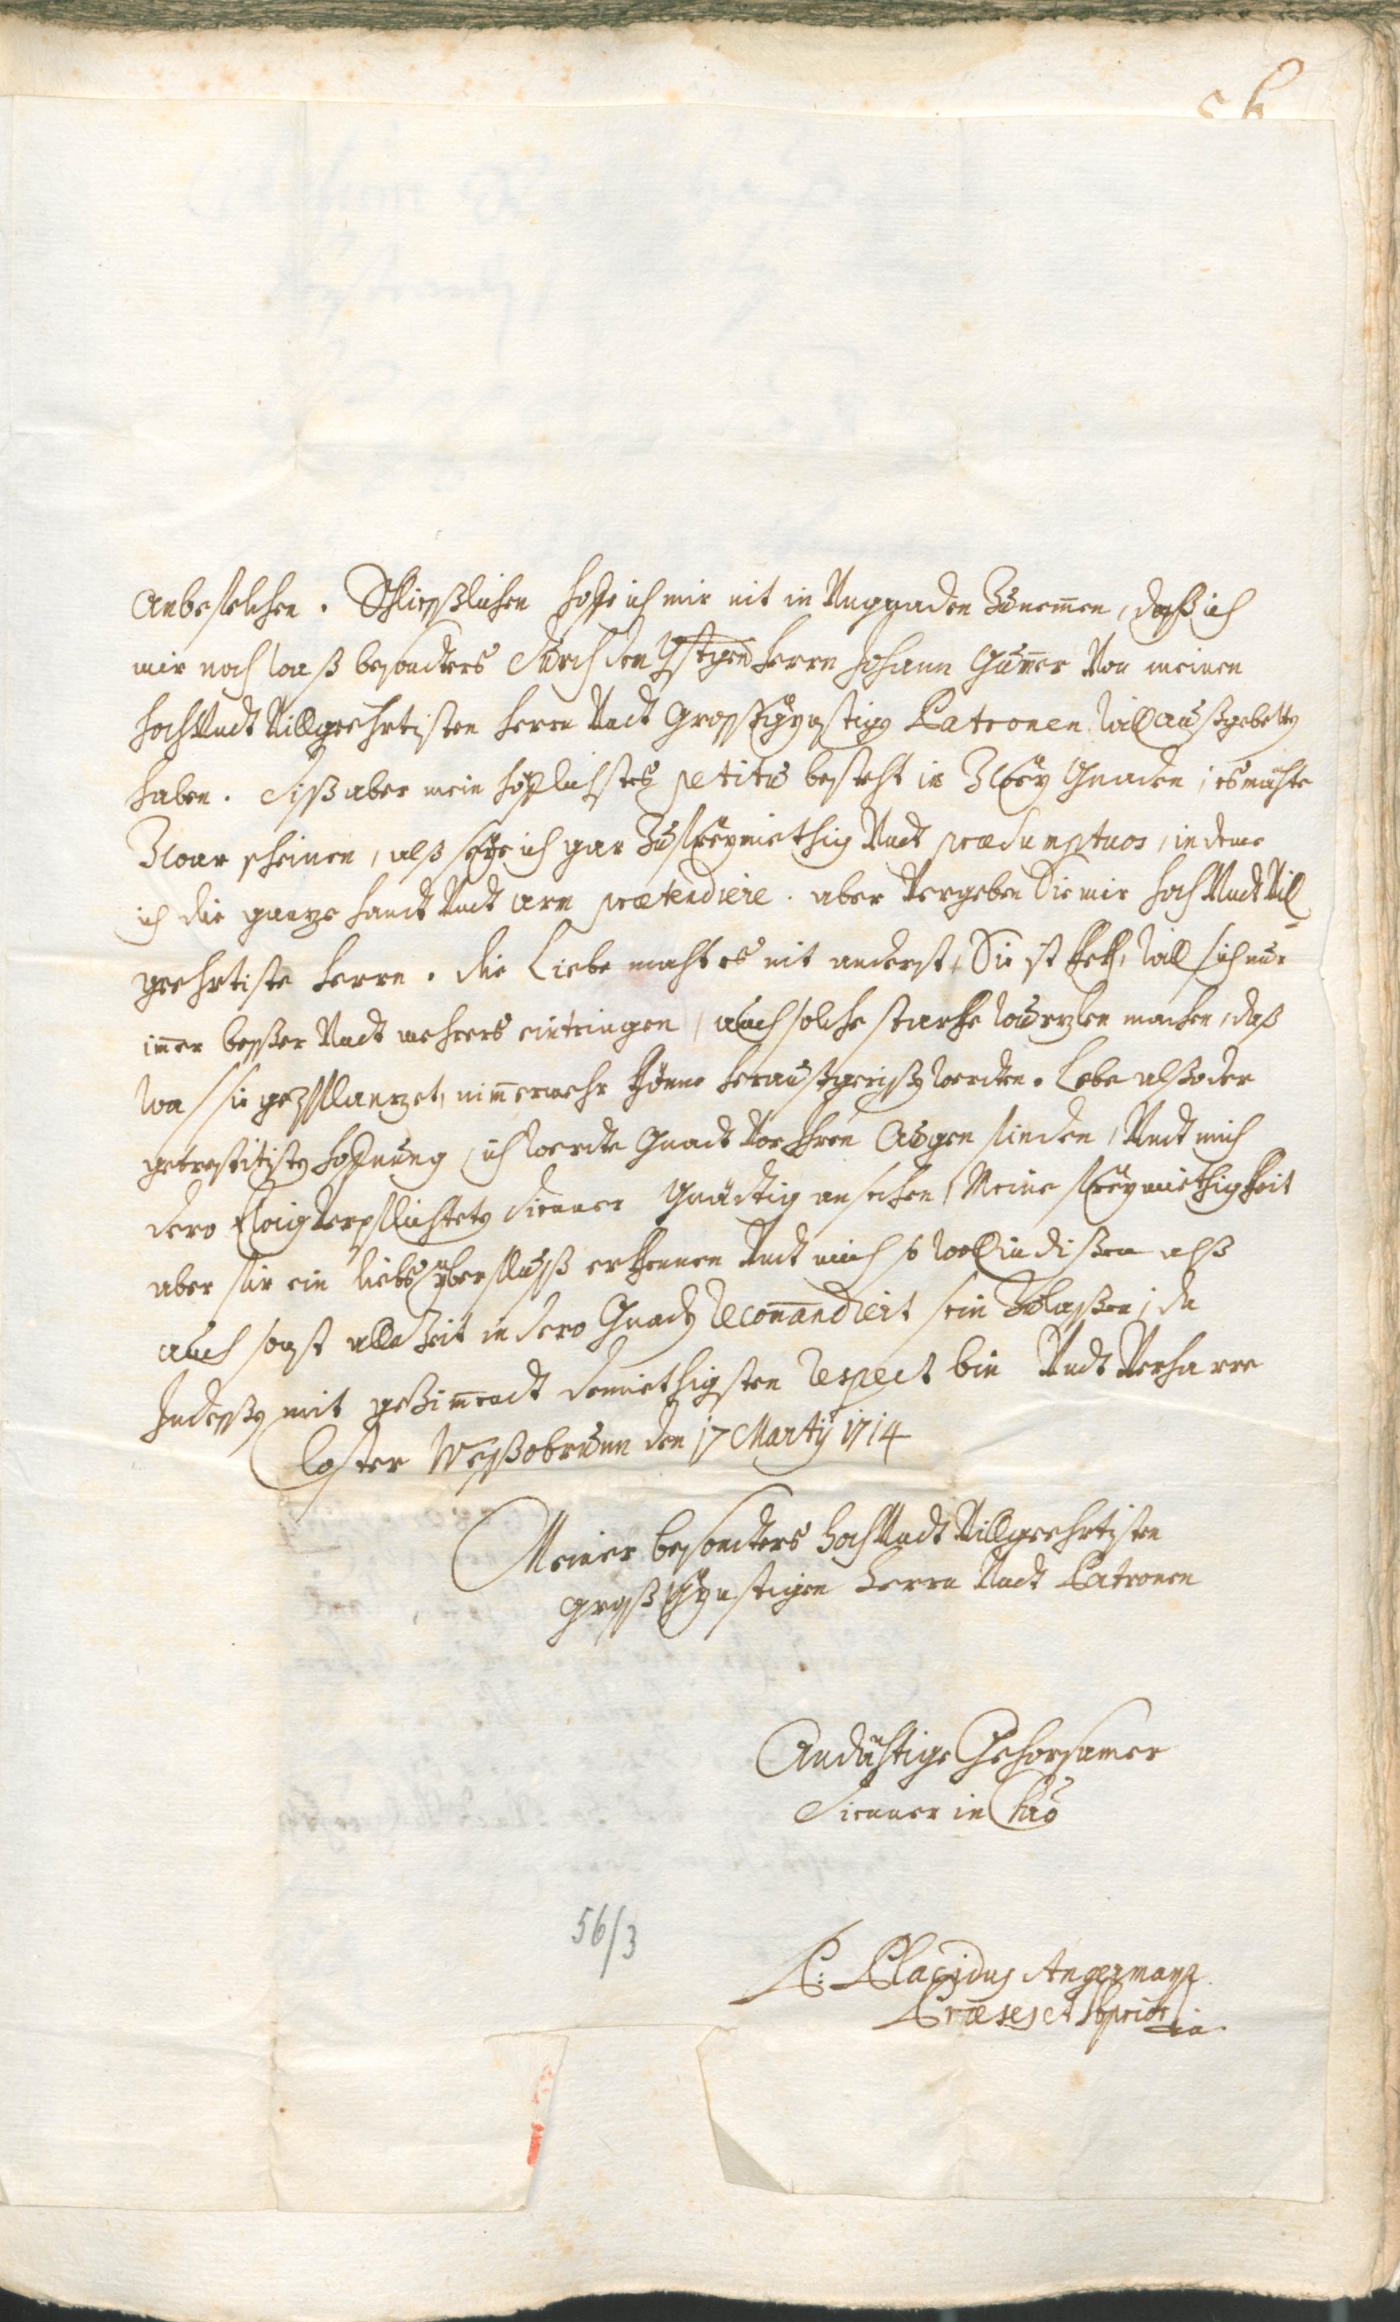 56
anbefelchen. Schliesslichen hoffe ich mir nit in Ungnaden Zunemen, dass ich
mir noch was besonders durch den Herrn Johann Guner Von meinen
hoch Undt Villgeehrtisten herrn Undt Grossgünstigen Patronen will aussgebetten
haben. diss aber mein höfflichstes petitum besteht in Zwey Gnaden; es möchte
Zwar scheinen, alss seye ich gar Zu freymiethig Undt præsumptuos, in deme
ich die gantze handt Undt arm prætendiere. aber Vergeben Sie mir hoch Undt Vill-
geehrtiste herrn. die Liebe macht es nit anderst, Sie ist kekh, will sich nur
imer besser Undt mehrers eintringen, auch solche starkhe wurzlen machen, dass
wa sie gepflanzet, nimermehr könne heraussgerissen werden. Lebe also der
getröstisten hoffnung, ich werde Gnadt Vor Ihren Augen finden, Undt mich
dero Ewig Verpflichteten dienner Gnädtig ansechen, Meine freymiethigkheit
aber für ein liebs yberfluss erkhennen Undt mich so woll in dissen alss
auch sonst alle Zeit in dero Gnaden recomandiert sein Zulassen; da
Indessen mit geZimendt demiethigsten respect bin Undt Verharre
Closter Wessobrunn den 17 Martij 1714
Meiner besonders hoch Undt Villgeehrtisten
grossgünstigen herrn Undt Patronen
Andächtige Gehorsamer
dienner in Chro
P: Placidus Angermayr
Præses et Sbprior
56/3